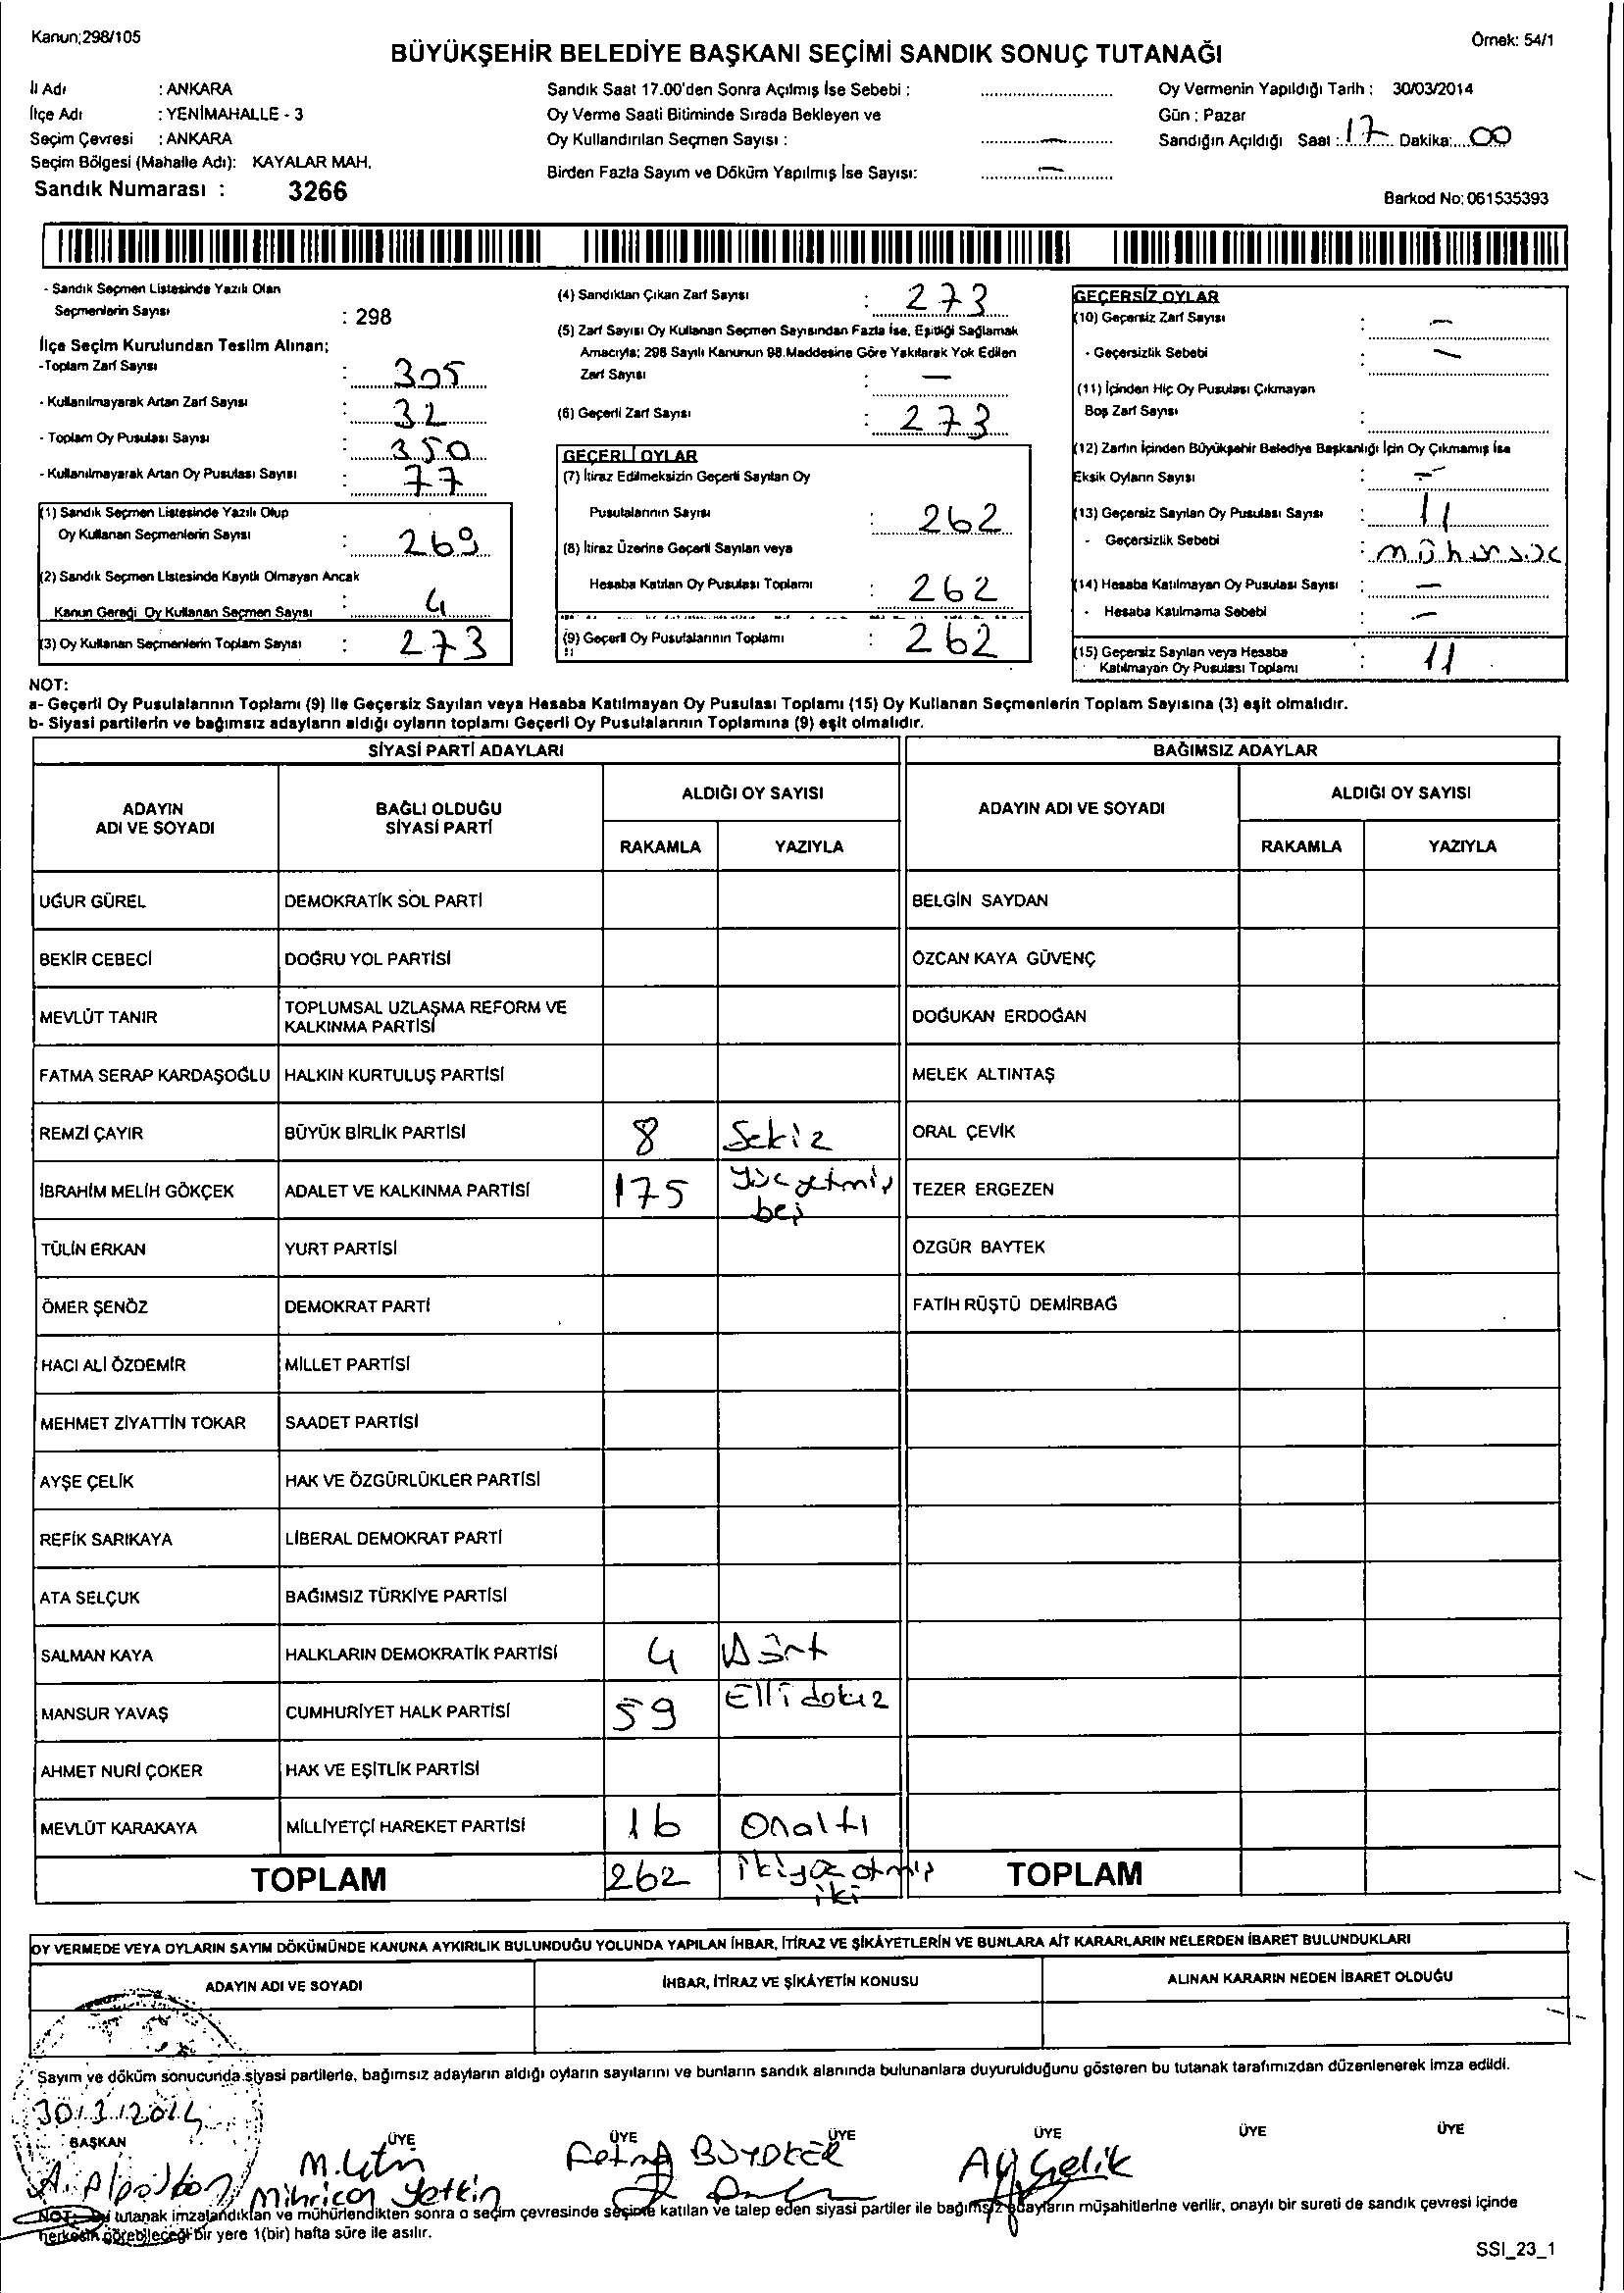 Kanun;298/105
Örnek: 54/1
BÜYÜKŞEHİR BELEDİYE BAŞKANI SEÇİMİ SANDIK SONUÇ TUTANAĞI
İl Adı : ANKARA
İlçe Adı : YENİMAHALLE - 3
Seçim Çevresi : ANKARA
Seçim Bölgesi (Mahalle Adı): KAYALAR MAH.
Sandık Numarası : 3266
Sandık Saat 17.00'den Sonra Açılmış İse Sebebi :
Oy Verme Saati Bitiminde Sırada Bekleyen ve
Oy Kullandırılan Seçmen Sayısı : —
Birden Fazla Sayım ve Döküm Yapılmış İse Sayısı: —
Oy Vermenin Yapıldığı Tarih : 30/03/2014
Gün : Pazar
Sandığın Açıldığı Saat : 17 Dakika: 00
Barkod No: 061535393
- Sandık Seçmen Listesinde Yazılı Olan
Seçmenlerin Sayısı : 298
İlçe Seçim Kurulundan Teslim Alınan;
-Toplam Zarf Sayısı : 305
- Kullanılmayarak Artan Zarf Sayısı : 32
- Toplam Oy Pusulası Sayısı : 350
- Kullanılmayarak Artan Oy Pusulası Sayısı : 77
(1) Sandık Seçmen Listesinde Yazılı Olup
Oy Kullanan Seçmenlerin Sayısı : 269
(2) Sandık Seçmen Listesinde Kayıtlı Olmayan Ancak
Kanun Gereği Oy Kullanan Seçmen Sayısı : 4
(3) Oy Kullanan Seçmenlerin Toplam Sayısı : 273
(4) Sandıktan Çıkan Zarf Sayısı : 273
(5) Zarf Sayısı Oy Kullanan Seçmen Sayısından Fazla İse, Eşitliği Sağlamak
Amacıyla; 298 Sayılı Kanunun 98.Maddesine Göre Yakılarak Yok Edilen
Zarf Sayısı : —
(6) Geçerli Zarf Sayısı : 273
GEÇERLİ OYLAR
(7) İtiraz Edilmeksizin Geçerli Sayılan Oy
Pusulalarının Sayısı : 262
(8) İtiraz Üzerine Geçerli Sayılan veya
Hesaba Katılan Oy Pusulası Toplamı : 262
(9) Geçerli Oy Pusulalarının Toplamı : 262
GEÇERSİZ OYLAR
(10) Geçersiz Zarf Sayısı : —
- Geçersizlik Sebebi : —
(11) İçinden Hiç Oy Pusulası Çıkmayan
Boş Zarf Sayısı :
(12) Zarfın İçinden Büyükşehir Belediye Başkanlığı İçin Oy Çıkmamış İse
Eksik Oyların Sayısı : —
(13) Geçersiz Sayılan Oy Pusulası Sayısı : 11
- Geçersizlik Sebebi : mühürsüz
(14) Hesaba Katılmayan Oy Pusulası Sayısı : —
- Hesaba Katılmama Sebebi : —
(15) Geçersiz Sayılan veya Hesaba
Katılmayan Oy Pusulası Toplamı : 11
NOT:
a- Geçerli Oy Pusulalarının Toplamı (9) İle Geçersiz Sayılan veya Hesaba Katılmayan Oy Pusulası Toplamı (15) Oy Kullanan Seçmenlerin Toplam Sayısına (3) eşit olmalıdır.
b- Siyasi partilerin ve bağımsız adayların aldığı oyların toplamı Geçerli Oy Pusulalarının Toplamına (9) eşit olmalıdır.
SİYASİ PARTİ ADAYLARI
ADAYIN ADI VE SOYADI BAĞLI OLDUĞU SİYASİ PARTİ ALDIĞI OY SAYISI
RAKAMLA YAZIYLA
UĞUR GÜREL DEMOKRATİK SOL PARTİ
BEKİR CEBECİ DOĞRU YOL PARTİSİ
MEVLÜT TANIR TOPLUMSAL UZLAŞMA REFORM VE KALKINMA PARTİSİ
FATMA SERAP KARDAŞOĞLU HALKIN KURTULUŞ PARTİSİ
REMZİ ÇAYIR BÜYÜK BİRLİK PARTİSİ 8 Sekiz
İBRAHİM MELİH GÖKÇEK ADALET VE KALKINMA PARTİSİ 175 beş
TÜLİN ERKAN YURT PARTİSİ
ÖMER ŞENÖZ DEMOKRAT PARTİ
HACI ALİ ÖZDEMİR MİLLET PARTİSİ
MEHMET ZİYATTİN TOKAR SAADET PARTİSİ
AYŞE ÇELİK HAK VE ÖZGÜRLÜKLER PARTİSİ
REFİK SARIKAYA LİBERAL DEMOKRAT PARTİ
ATA SELÇUK BAĞIMSIZ TÜRKİYE PARTİSİ
SALMAN KAYA HALKLARIN DEMOKRATİK PARTİSİ 4 Dört
MANSUR YAVAŞ CUMHURİYET HALK PARTİSİ 59 Elli dokuz
AHMET NURİ ÇOKER HAK VE EŞİTLİK PARTİSİ
MEVLÜT KARAKAYA MİLLİYETÇİ HAREKET PARTİSİ 16 Onaltı
TOPLAM 262 ikiyüz atmış iki
BAĞIMSIZ ADAYLAR
ADAYIN ADI VE SOYADI ALDIĞI OY SAYISI
RAKAMLA YAZIYLA
BELGİN SAYDAN
ÖZCAN KAYA GÜVENÇ
DOĞUKAN ERDOĞAN
MELEK ALTINTAŞ
ORAL ÇEVİK
TEZER ERGEZEN
ÖZGÜR BAYTEK
FATİH RÜŞTÜ DEMİRBAĞ
TOPLAM
OY VERMEDE VEYA OYLARIN SAYIM DÖKÜMÜNDE KANUNA AYKIRILIK BULUNDUĞU YOLUNDA YAPILAN İHBAR, İTİRAZ VE ŞİKÂYETLERİN VE BUNLARA AİT KARARLARIN NELERDEN İBARET BULUNDUKLARI
ADAYIN ADI VE SOYADI İHBAR, İTİRAZ VE ŞİKÂYETİN KONUSU ALINAN KARARIN NEDEN İBARET OLDUĞU
Sayım ve döküm sonucunda siyasi partilerle, bağımsız adayların aldığı oyların sayılarını ve bunların sandık alanında bulunanlara duyurulduğunu gösteren bu tutanak tarafımızdan düzenlenerek imza edildi.
30/3/2014
BAŞKAN ÜYE ÜYE ÜYE ÜYE ÜYE ÜYE
Mihrican Yetkin
Ali Çelik
NOT: Bu tutanak imzalandıktan ve mühürlendikten sonra o seçim çevresinde seçime katılan ve talep eden siyasi partiler ile bağımsız adayların müşahitlerine verilir, onaylı bir sureti de sandık çevresi içinde
herkesin görebileceği bir yere 1(bir) hafta süre ile asılır.
SSI_23_1